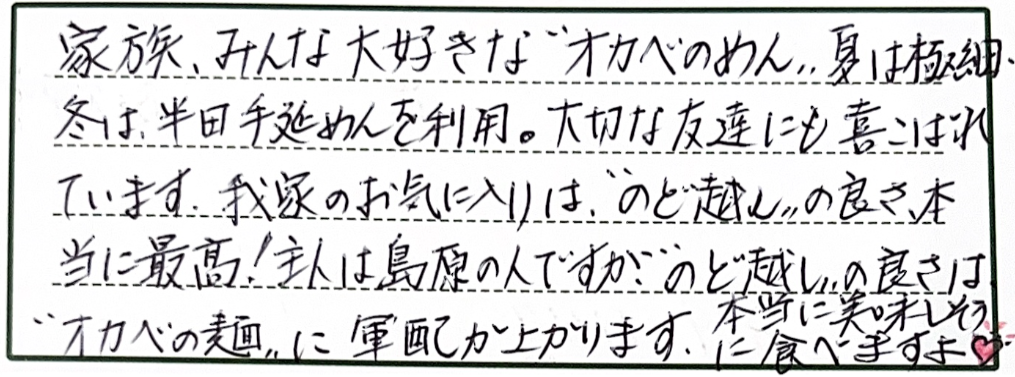 家族、みんな大好きな〝オカベのめん〟夏は極細、
冬は、半田手延めんを利用。大切な友達にも喜こばれ
ています。我家のお気に入りは、〝のど越し〟の良さ、本
当に最高!主人は島原の人ですが、〝のど越し〟の良さは
〝オカベの麺〟に軍配が上がります。本当に美味しそう
に食べますよ♡